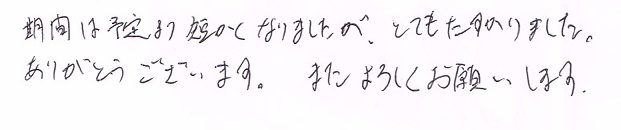 期間は予定より短かくなりましたが、とてもたすかりました。
ありがとうございます。 またよろしくお願いします.